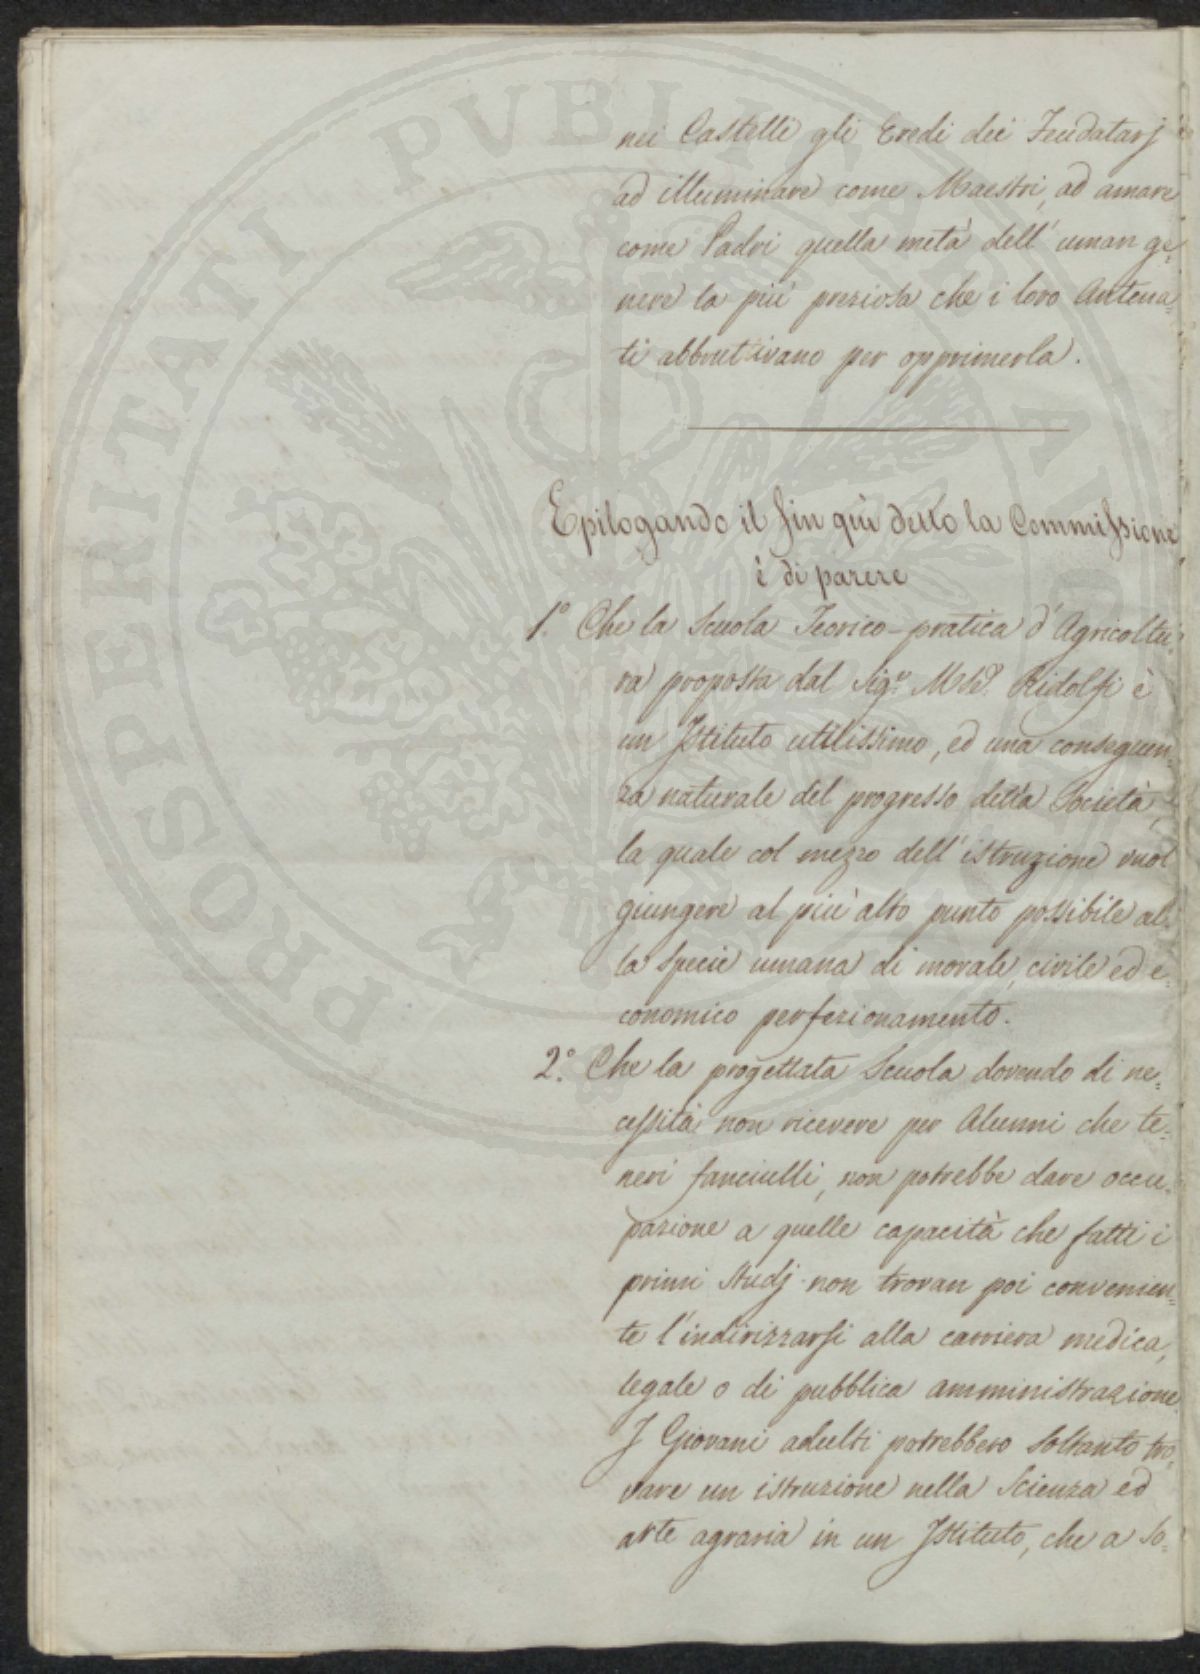 nei Castelli gli Eredi dei Feudatarj
ad illuminare come Maestri, ad amare
come Padri quella metà dell'uman ge=
nere la più preziosa che i loro Antena=
ti abbrutivano per opprimerla.
Epilogando il fin quì detto la Commissione
è di parere
1.° Che la Scuola Teorico-pratica d'Agricoltu=
ra proposta dal Sig.r M.se Ridolfi è
un Istituto utilissimo, ed una conseguen=
za naturale del progresso della Società,
la quale col mezzo dell'istruzione vuol
giungere al più alto punto possibile al=
la specie umana di morale, civile ed e=
conomico perfezionamento.
2.° Che la progettata Scuola dovendo di ne=
cessità non ricevere per Alunni che te=
neri fanciulli, non potrebbe dare occu=
pazione a quelle capacità che fatti i
primi studj non trovan poi convenien=
te l'indirizzarsi alla carriera medica,
legale o di pubblica amministrazione.
I Giovani adulti potrebbero soltanto tro=
vare un istruzione nella Scienza ed
arte agraria in un Istituto, che a so=
PROSPERITATI PVBLICAE AVGENDAE